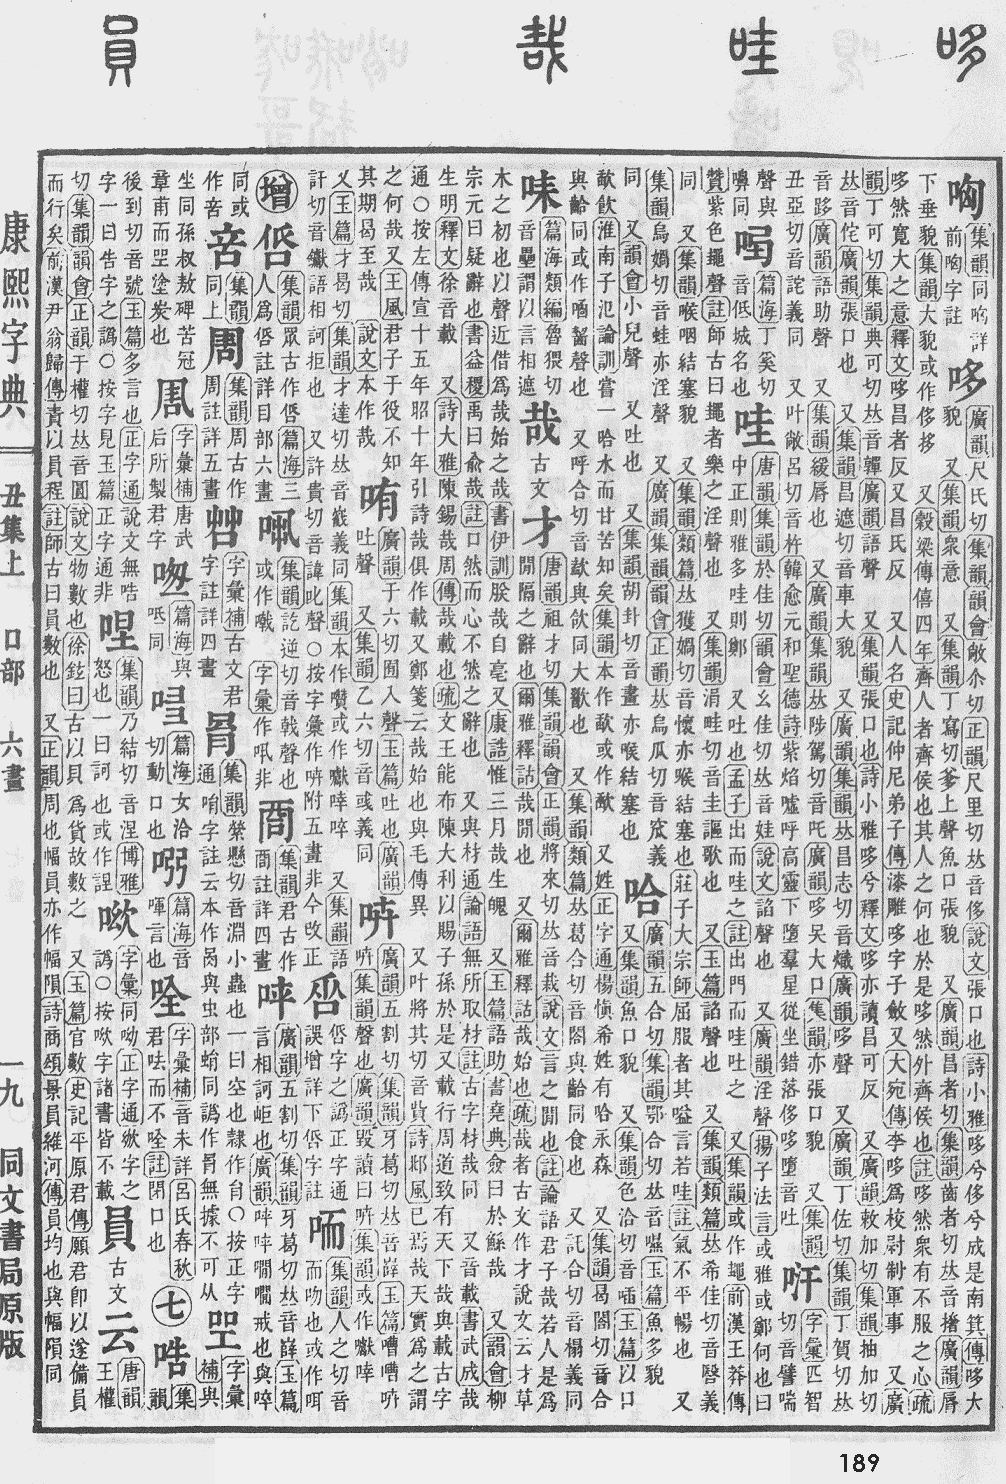 哆
哇
哉
員
集韻同哅詳前哅字註
哆 廣韻尺氏切集韻韻會敞尒切正韻尺里切𠀤音侈說文張口也詩小雅哆兮侈兮成是南箕傳哆大
貌 又集韻丁寫切爹上聲魚口張貌 又廣韻昌者切集韻齒者切𠀤音撦廣韻脣
下垂貌集韻大貌或作侈 又榖梁傳僖四年齊人者齊侯也其人之何也於是哆然外齊侯也註哆然衆有不服之心疏
哆然寬大之意釋文哆昌者反又昌氏反 又人名史記仲尼弟子傳漆雕哆字子斂又大宛傳李哆爲校尉制軍事 又廣
韻丁可切集韻典可切𠀤音嚲廣韻語聲 又集韻張口也詩小雅哆兮釋文哆亦讀昌可反 又廣韻敕加切集韻抽加切
𠀤音侘廣韻張口也 又集韻昌遮切音車大貌 又廣韻集韻𠀤昌志切音熾廣韻哆聲 又廣韻丁佐切集韻丁賀切𠀤
音跢廣韻語助聲 又集韻綏脣也 又廣韻集韻𠀤陟駕切音吒廣韻哆吴大口集韻亦張口貌 又集韻
丑亞切音詫義同 又叶敞呂切音杵韓愈元和聖德詩紫焰噓呼高靈下墮羣星從坐錯落侈哆墮音吐
字彙匹智切音譬喘
聲與嚊同
篇海丁奚切音低城名也
哇 唐韻集韻於佳切韻會幺佳切𠀤音娃說文諂聲也 又廣韻淫聲揚子法言或雅或鄭何也曰
中正則雅多哇則鄭 又吐也孟子出而哇之註出門而哇吐之 又集韻或作䵷前漢王莽傳
贊紫色䵷聲註師古曰䵷者樂之淫聲也 又集韻涓畦切音圭謳歌也 又玉篇諂聲也 又集韻類篇𠀤希佳切音醫義
同 又集韻喉咽結塞貌 又集韻類篇𠀤獲媧切音懷亦喉結塞也莊子大宗師屈服者其嗌言若哇註氣不平暢也 又
集韻烏媧切音蛙亦淫聲 又廣韻集韻韻會正韻𠀤烏瓜切音窊義
同 又韻會小兒聲 又吐也 又集韻胡卦切音畫亦喉結塞也
哈 廣韻五合切集韻鄂合切𠀤音㗸玉篇魚多貌
又集韻魚口貌 又集韻色洽切音㰱玉篇以口
歃飲淮南子氾論訓嘗一哈水而甘苦知矣集韻本作歃或作㰱 又姓正字通楊愼希姓有哈永森 又集韻曷閤切音合
與齡同或作嗋㗿聲也 又呼合切音欱與飲同大歠也 又集韻類篇𠀤葛合切音閤與齡同食也 又託合切音榻義同
味 篇海類編魯猥切音壘謂以言相遮
哉 古文才 唐韻祖才切集韻韻會正韻將來切𠀤音栽說文言之閒也註論語君子哉若人是爲
閒隔之辭也爾雅釋詁哉閒也 又爾雅釋詁哉始也疏哉者古文作才說文云才草
木之初也以聲近借爲哉始之哉書伊訓朕哉自亳又康誥惟三月哉生魄 又玉篇語助書堯典僉曰於鯀哉 又韻會柳
宗元曰疑辭也書益稷禹曰俞哉註口然而心不然之辭也 又與材通論語無所取材註古字材哉同 又與載通書武成哉
生明釋文徐音載 又詩大雅陳錫哉周傳哉載也疏文王能布陳大利以賜子孫於是又載行周道致有天下哉與載古字
通〇按左傳宣十五年昭十年引詩哉俱作載又鄭箋云哉始也與毛傳異 又叶將其切音貲詩邶風已焉哉天實爲之謂
之何哉又王風君子于役不知其期曷至哉 說文本作哉
哊 廣韻于六切囿入聲玉篇吐也廣韻
吐聲 又集韻乙六切音彧義同
哘 廣韻五割切集韻牙葛切𠀤音嶭玉篇嘈嘈哘
哘集韻聲也廣韻毀讀曰哘集韻或作囐啐
又玉篇才曷切集韻才達切𠀤音巀義同集韻本作囋或作囐啐 又集韻語
訐切音钀語相訶拒也 又許貴切音諱叱聲〇按字彙作哘附五畫非今改正
俻字之譌正字通
誤增詳下俻字註
咡 集韻人之切音
而吻也或作咡
增
俻 集韻眾古作俻篇海三
人爲俻註詳目部六畫
集韻訖逆切音戟聲也
或作㗲 字彙作呧非
集韻君古作
商註詳四畫
廣韻五割切集韻牙葛切𠀤音嶭玉篇
言相訶岠也廣韻呯呯嚪嚪戒也與啐
同或作啻 集韻同上
周 集韻周古作周註詳五畫
字彙補古文君字註詳四畫
咠 集韻縈懸切音淵小蟲也一曰空也隸作肙〇按正字
通哨字註云本作咼與虫部蜎同譌作咠無據不可从
字彙補與坐同孫叔敖碑苦冠章甫而坐塗炭也
字彙補唐武后所製君字
篇海與呡同
篇海女洽切動口也
篇海音喗言也
哾 字彙補音未詳呂氏春秋君呿而不唫註閉口也
七
哠 集韻
後到切音號玉篇多言也正字通說文無哠
字一曰吿字之譌〇按字見玉篇正字通非
哩 集韻乃結切音涅博雅
怒也一曰訶也或作謃
㰯 字彙同呦正字通㰯字之
譌〇按㰯字諸書皆不載
員 古文云 唐韻王權
切集韻韻會正韻于權切𠀤音圓說文物數也徐鉉曰古以貝爲貨故數之 又玉篇官數史記平原君傳願君卽以遂備員
而行矣前漢尹翁歸傳責以員程註師古曰員數也 又正韻周也幅員亦作幅隕詩商頌景員維河傳員均也與幅隕同
康熙字典
丑集上 口部 六畫
一九
同文書局原版
189